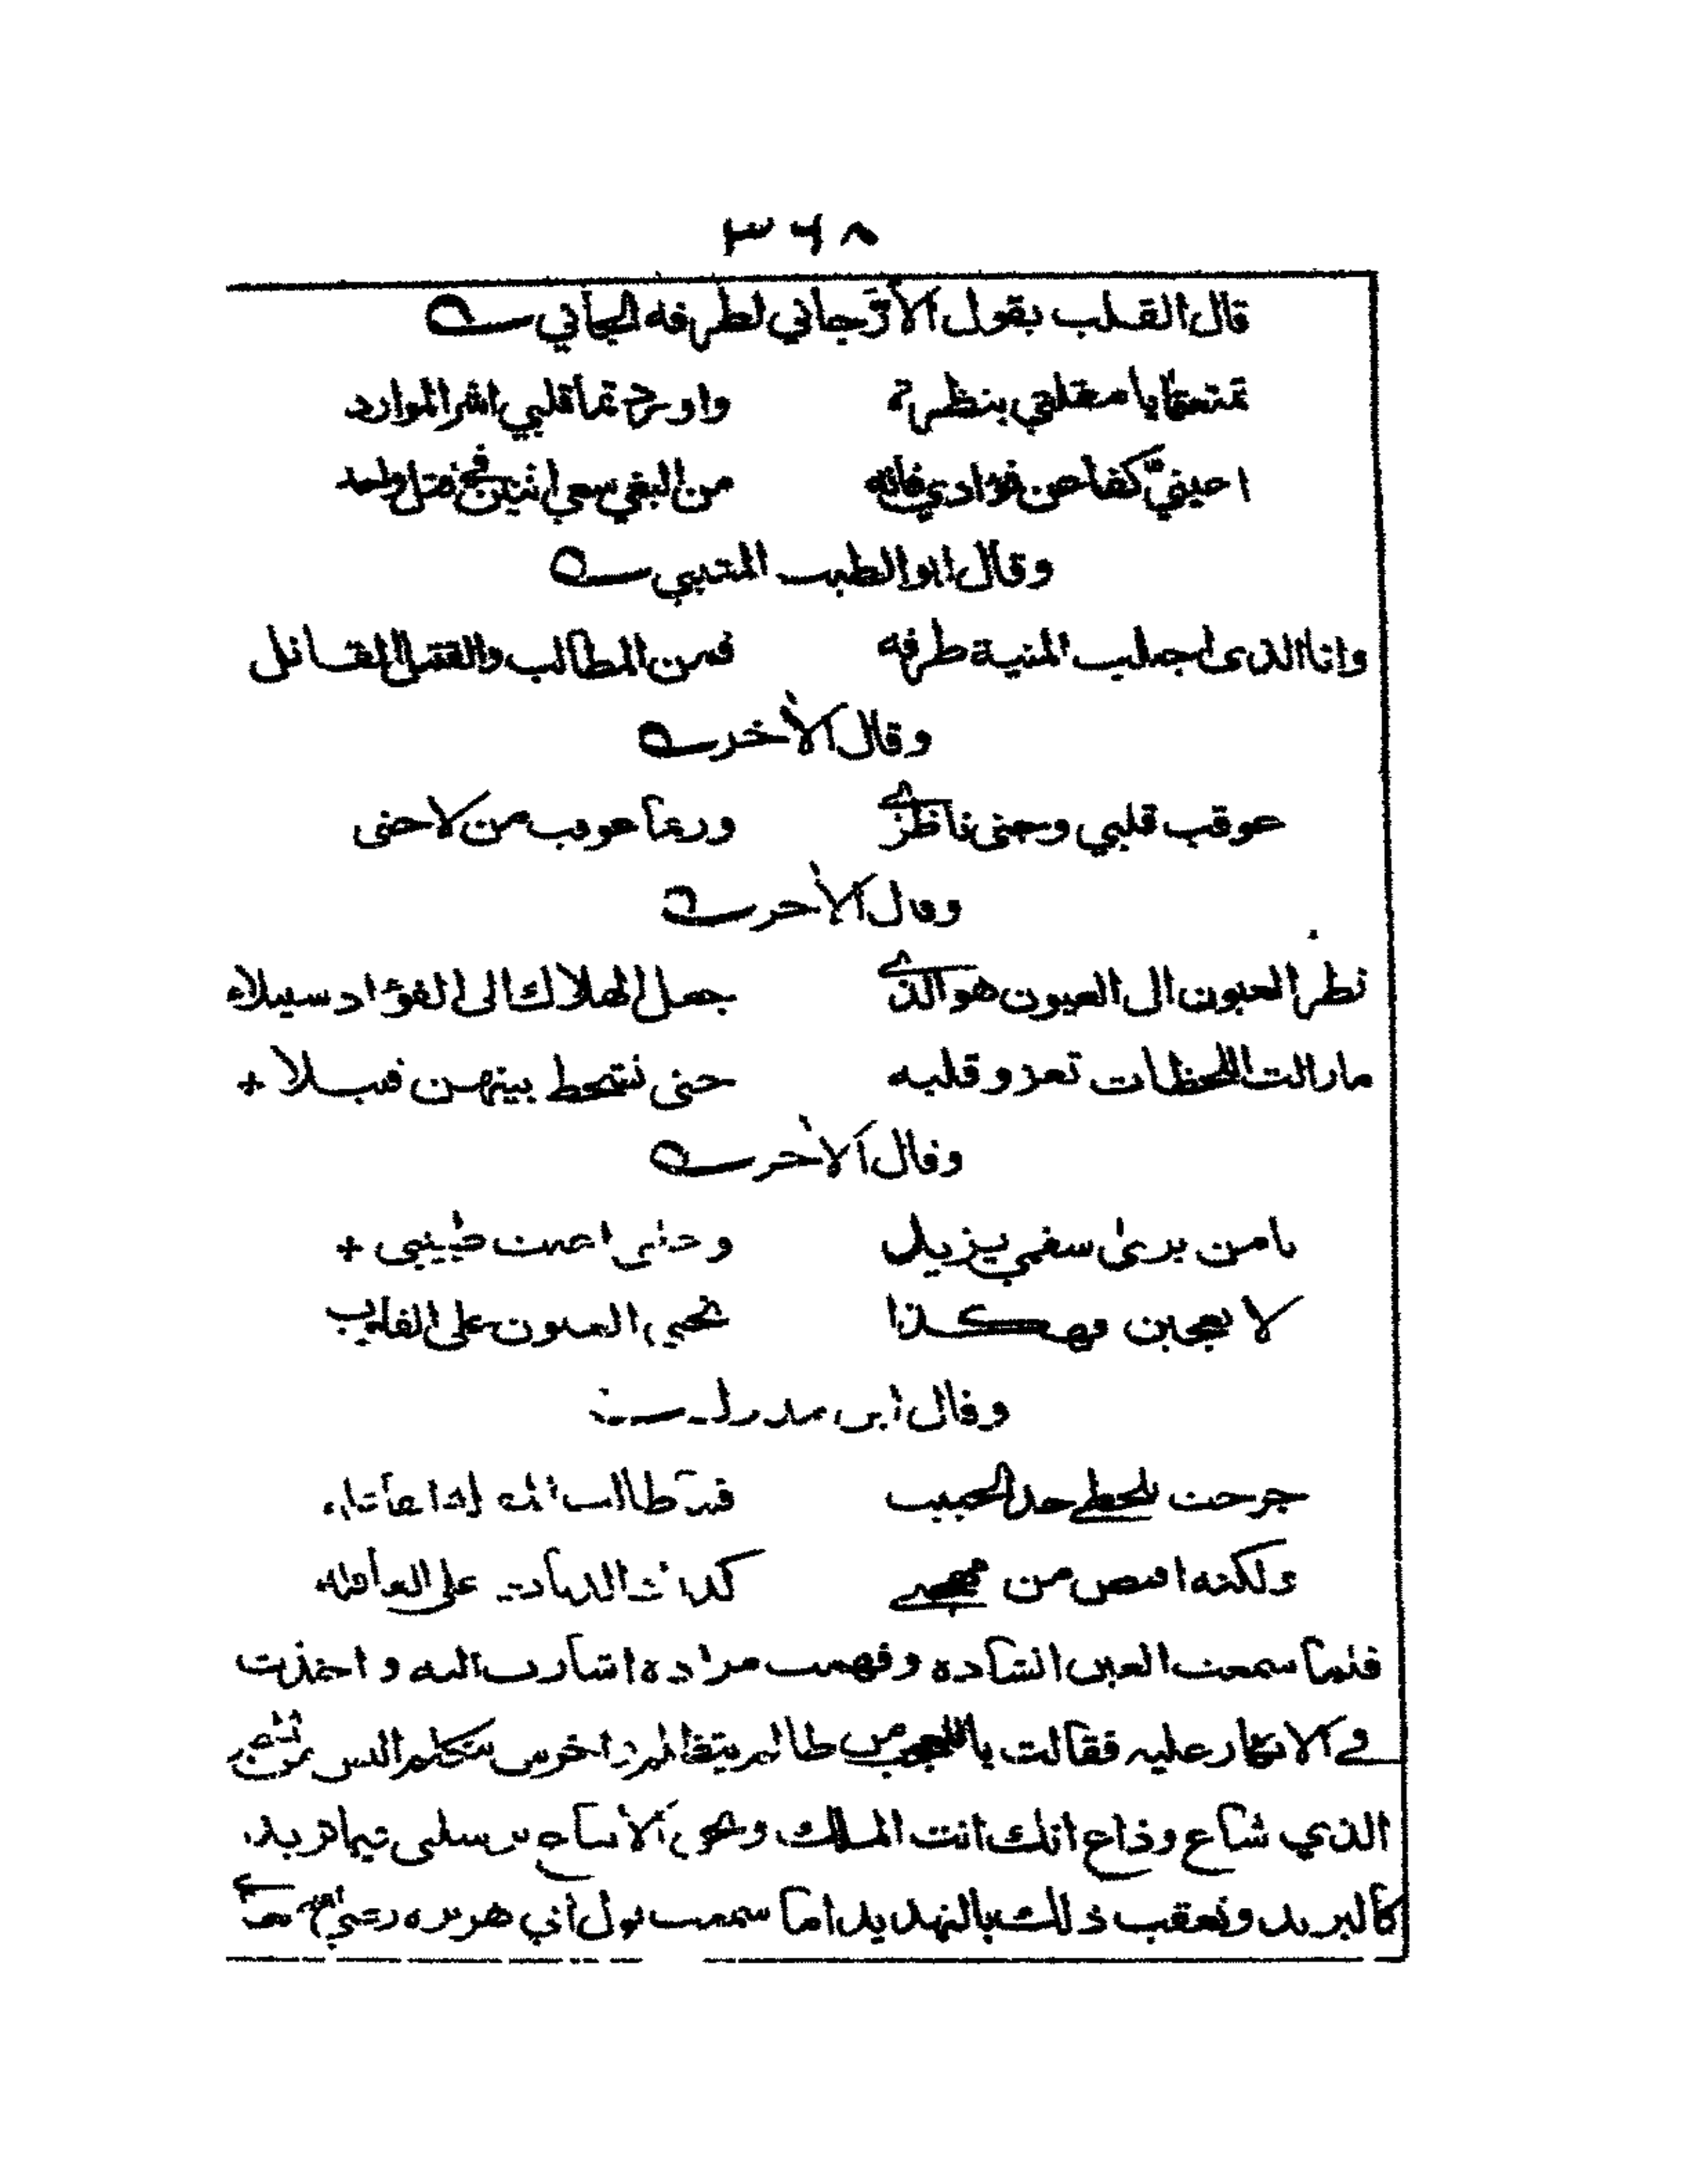 ٣٦٨
قال القلب بقول الأرّجاني لطرفه الجاني
تمتعتما يا مقلتي بنظرة واوردتما قلبي اشر الموارد
اعينيّ كفا عن فؤادي فانه من البغي سعي اثنين في قتل واحد
وقال ابو الطيب المتنبي
وانا الذى اجتلب المنية طرفه فمن المطالب والقتيل القاتل
وقال الآخر
عوقب قلبي وجنى ناظري وربما عوقب من لا جنى
وقال الآخر
نظر العيون الى العيون هو الذي جعل الهلاك الى الفؤاد سبيلا
مازالت اللحظات تغزو قلبه حتى تشحط بينهن قتيلا +
وقال الآخر
يا من يرى سقمي يزيد وعلتي اعيت طبيبي +
لا تعجبن فهكذا تجني العيون على القلوب
وقال ابن
جرحت بلحظي خد الحبيب فما طالب
ولكنه اقتص من مهجتي كذاك الديات على العاقله
فلما سمعت العين انشاده وفهمت مراده اشارت اليه واخذت
في الانكار عليه فقالت يا للعجب من ظالم يتظلم واخرس يتكلم اليس
الذي شاع وذاع انك انت الملك ونحن الاتباع ترسلني فيما تريد
كالبريد وتعقب ذلك بالتهديد اما سمعت قول أبي هريره رضي الله